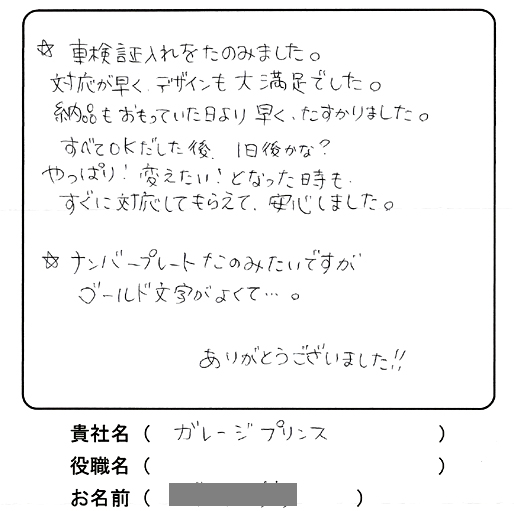 ☆ 車検証入れをたのみました。
対応が早く、デザインも大満足でした。
納品もおもっていた日より早く、たすかりました。
すべてOKだした後、1日後かな?
やっぱり!変えたい!となった時も、
すぐに対応してもらえて、安心しました。
☆ ナンバープレートたのみたいですが
ゴールド文字がよくて…。
ありがとうございました!!
貴社名( ガレージプリンス )
役職名( )
お名前( )